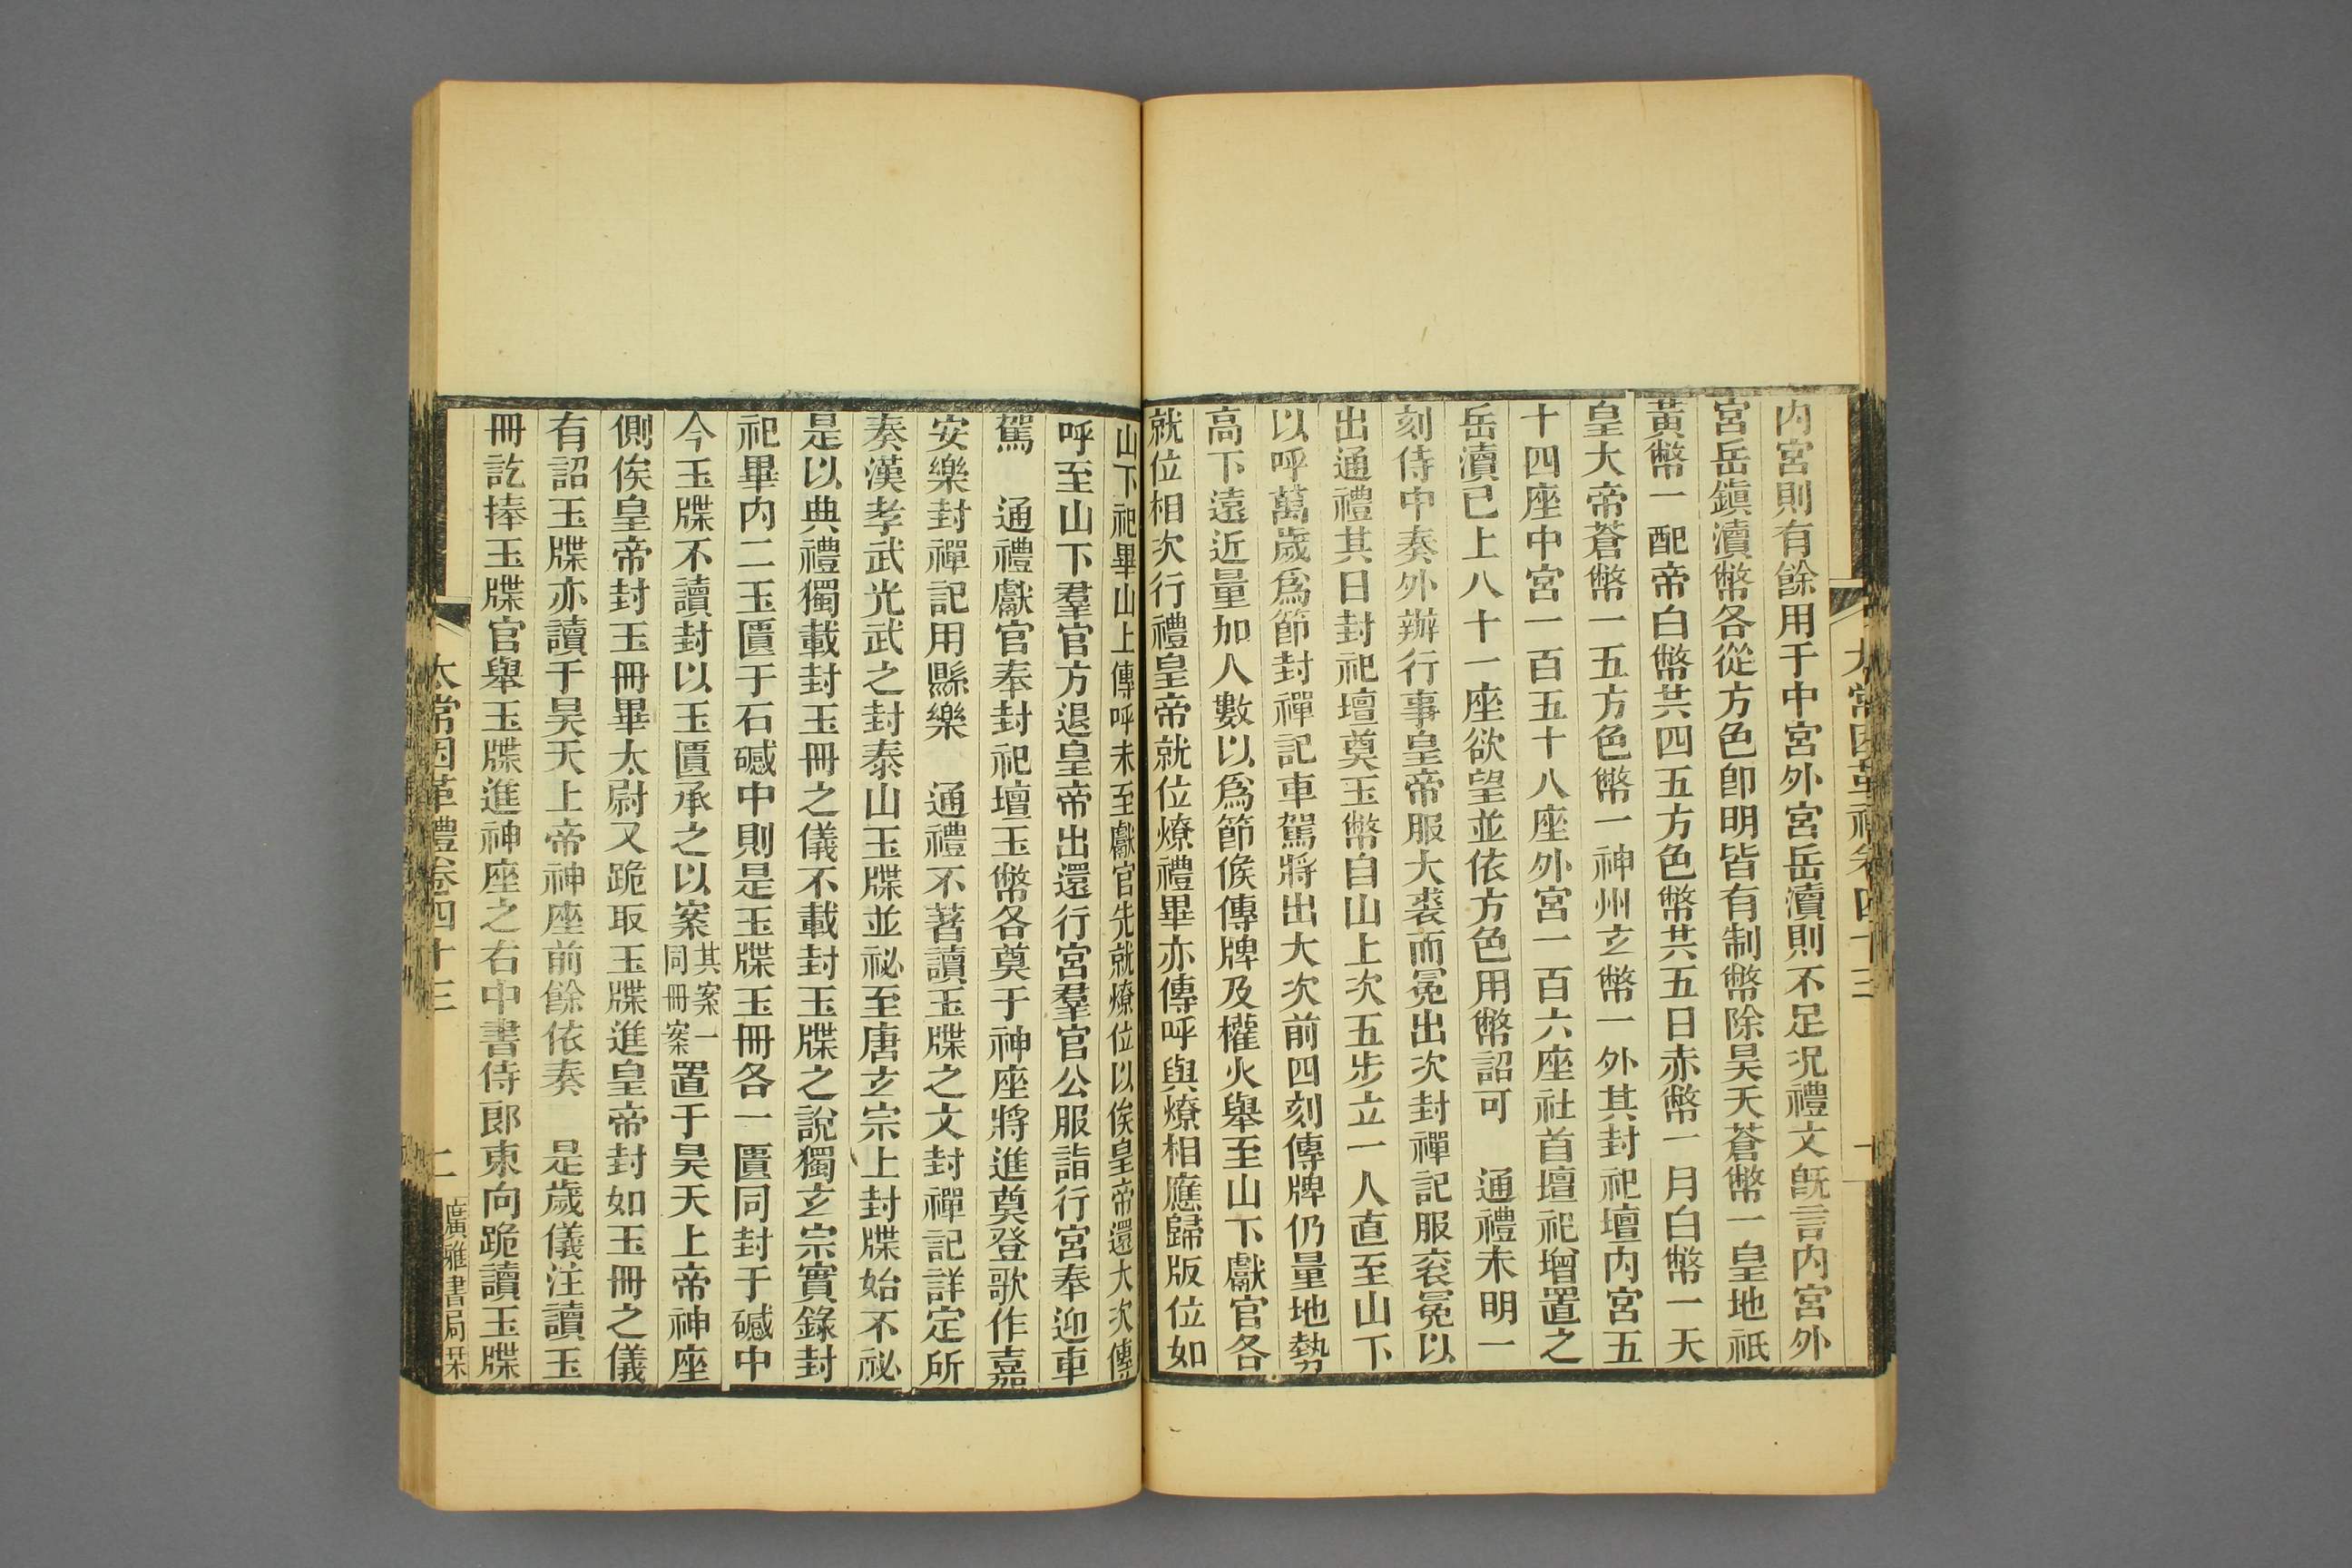 內宮則有餘用于中宮外宮岳瀆則不足況禮文旣言內宮外
宮岳鎭瀆幣各從方色卽明皆有制幣除昊天蒼幣一皇地祇
黃幣一配帝白幣共四五方色幣共五日赤幣一月白幣一天
皇大帝蒼幣一五方色幣一神州玄幣一外其封祀壇內宮五
十四座中宮一百五十八座外宮一百六座社首壇祀增置之
岳瀆已上八十一座欲望並依方色用幣詔可　通禮未明一
刻侍中奏外辦行事皇帝服大裘而冕出次封禪記服袞冕以
出通禮其日封祀壇奠玉幣自山上次五步立一人直至山下
以呼萬歲爲節封禪記車駕將出大次前四刻傳牌仍量地勢
高下遠近量加人數以爲節候傳牌及權火舉至山下獻官各
就位相次行禮皇帝就位燎禮畢亦傳呼與燎相應歸版位如
山下祀畢山上傳呼未至獻官先就燎位以俟皇帝還大次傳
呼至山下羣官方退皇帝出還行宮羣官公服詣行宮奉迎車
駕　通禮獻官奉封祀壇玉幣各奠于神座將進奠登歌作嘉
安樂封禪記用縣樂　通禮不著讀玉牒之文封禪記詳定所
奏漢孝武光武之封泰山玉牒並祕至唐玄宗上封牒始不祕
是以典禮獨載封玉冊之儀不載封玉牒之說獨玄宗實錄封
祀畢內二玉匱于石礈中則是玉牒玉冊各一匱同封于礈中
今玉牒不讀封以玉匱承之以案其案一同冊案置于昊天上帝神座
側俟皇帝封玉冊畢太尉又跪取玉牒進皇帝封如玉冊之儀
有詔玉牒亦讀于昊天上帝神座前餘依奏　是歲儀注讀玉
冊訖捧玉牒官舉玉牒進神座之右中書侍郎東向跪讀玉牒
太常因革禮卷四十三
二
廣雅書局栞